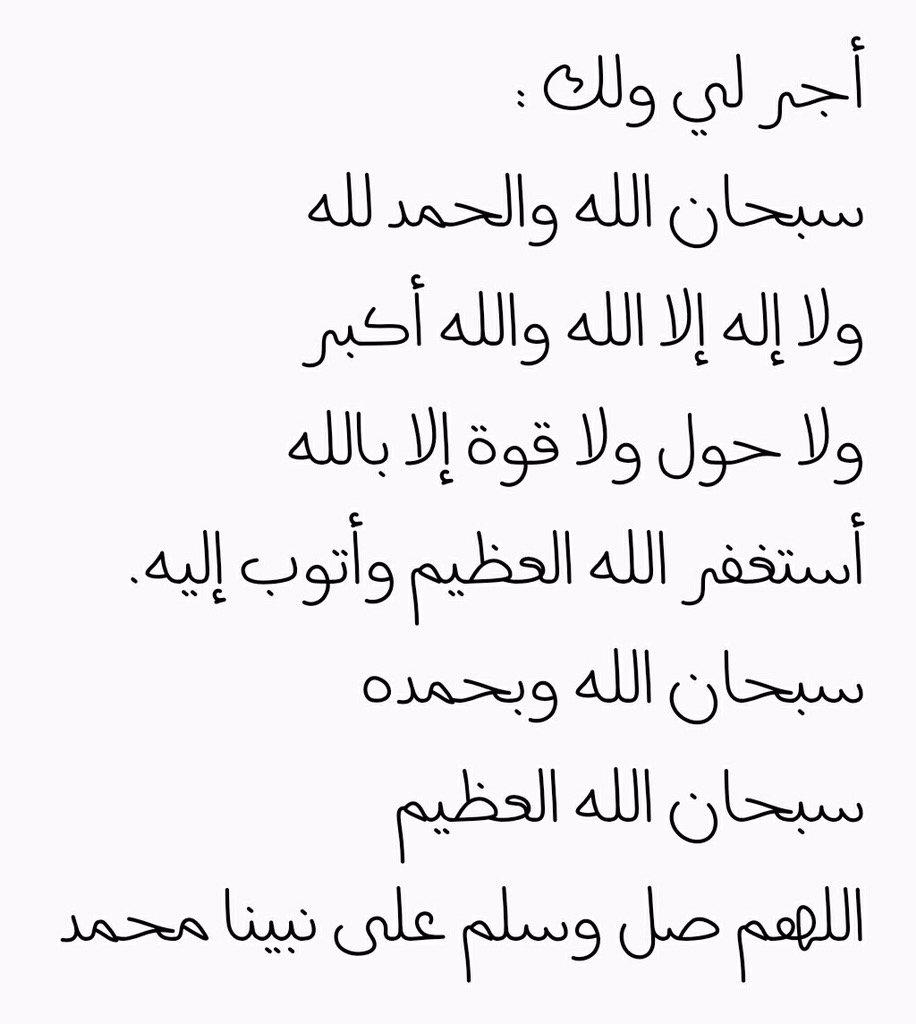 أجر لي ولك :
سبحان الله والحمد لله
ولا إله إلا الله والله أكبر
ولا حول ولا قوة إلا بالله
أستغفر الله العظيم وأتوب إليه.
سبحان الله وبحمده
سبحان الله العظيم
اللهم صل وسلم على نبينا محمد